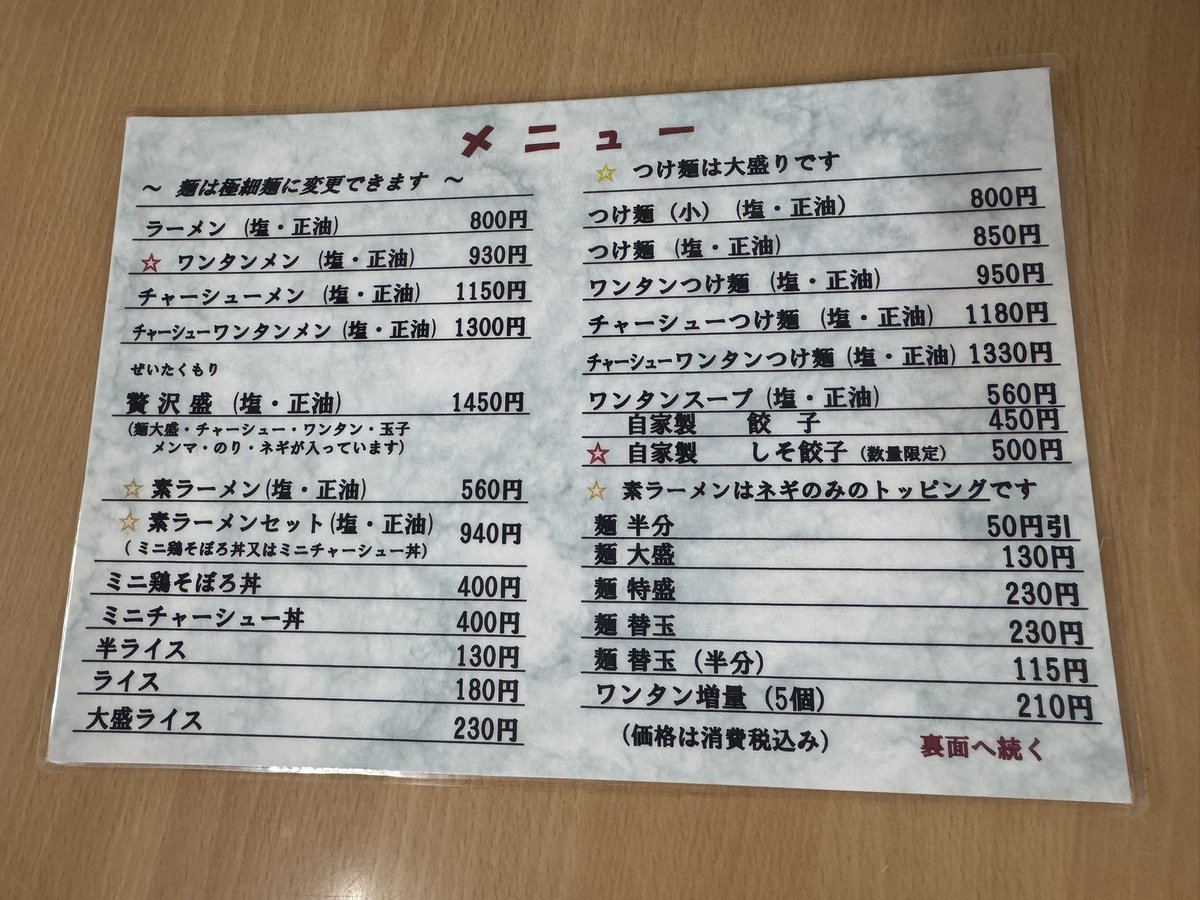 メニュー
～ 麺は極細麺に変更できます ～
ラーメン (塩・正油) 800円
☆ ワンタンメン (塩・正油) 930円
チャーシューメン (塩・正油) 1150円
チャーシューワンタンメン (塩・正油) 1300円
ぜいたくもり
贅沢盛 (塩・正油) 1450円
(麺大盛・チャーシュー・ワンタン・玉子
メンマ・のり・ネギが入っています)
☆ 素ラーメン(塩・正油) 560円
☆ 素ラーメンセット(塩・正油) 940円
(ミニ鶏そぼろ丼又はミニチャーシュー丼)
ミニ鶏そぼろ丼 400円
ミニチャーシュー丼 400円
半ライス 130円
ライス 180円
大盛ライス 230円
☆ つけ麺は大盛りです
つけ麺 (小) (塩・正油) 800円
つけ麺 (塩・正油) 850円
ワンタンつけ麺 (塩・正油) 950円
チャーシューつけ麺 (塩・正油) 1180円
チャーシューワンタンつけ麺 (塩・正油) 1330円
ワンタンスープ (塩・正油) 560円
自家製 餃子 450円
☆ 自家製 しそ餃子 (数量限定) 500円
☆ 素ラーメンはネギのみのトッピングです
麺 半分 50円引
麺 大盛 130円
麺 特盛 230円
麺 替玉 230円
麺 替玉 (半分) 115円
ワンタン増量 (5個) 210円
(価格は消費税込み)
裏面へ続く